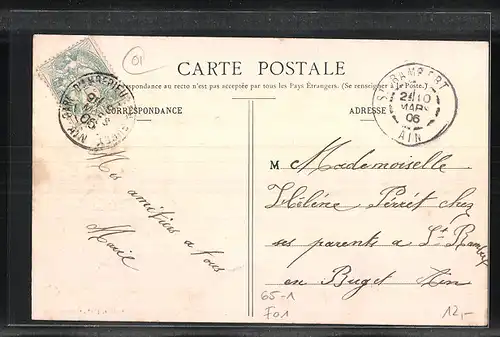 01
CARTE POSTALE
respondance au recto n'est pas acceptée par tous les Pays Étrangers. (Se renseigner à la Poste.)
CORRESPONDANCE
ADRESSE
ST RAMBERT
21 10
MARS
06
AIN
MARS
06
Mes amitiés a tous
Marie
M Mademoiselle
Hélène Perret chez
ses parents a St Rambert
en Bugey Ain
65-1
F01
12,-